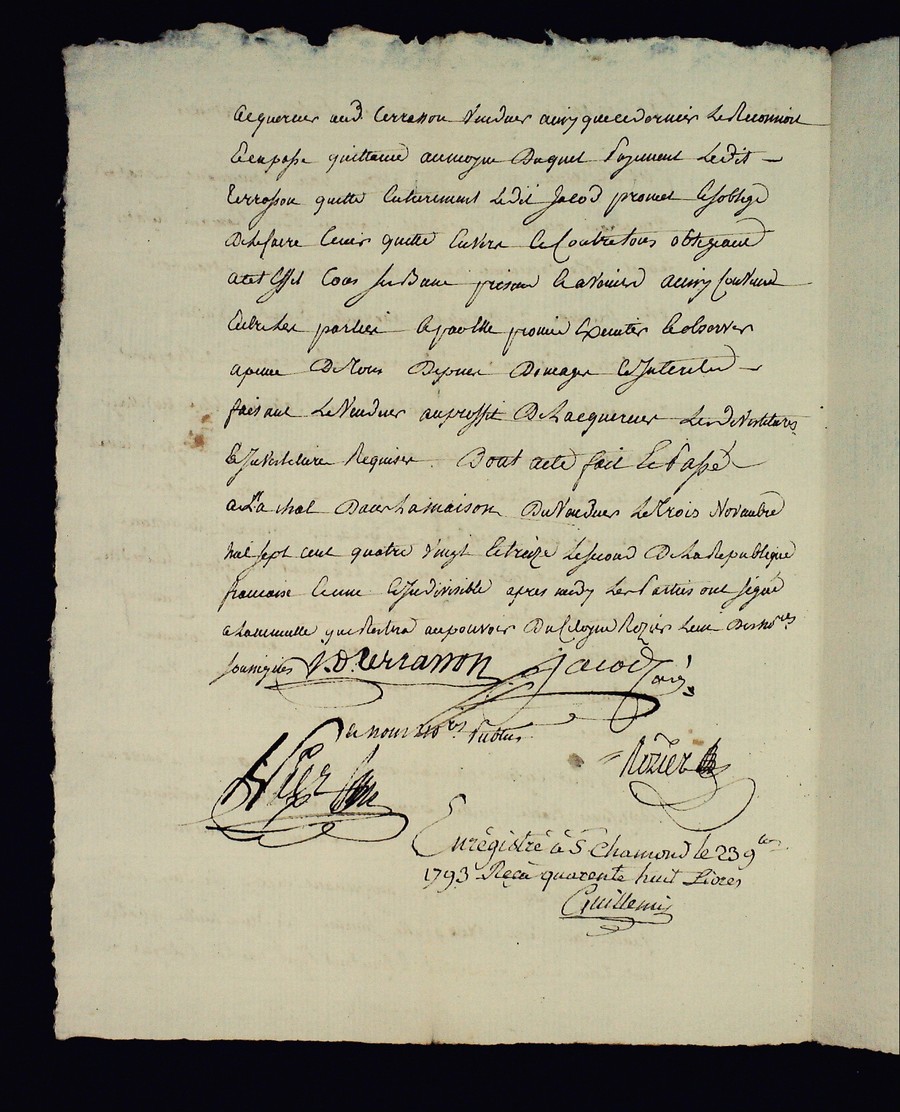 acquereur aud. terrasson vendeur ainsy que ce dernier le Reconnoit
Et en passe quittance au moyen Duquel payement Ledit
terrasson quitte Entierement Ledit Jacod promet Et s'oblige
De le faire tenir quitte Envers Et Contre tous obligeant
a cet Effet tous ses Biens present Et a venir ainsy Convenu
Entre les parties Et par Elle promis Executer Et observer
a peine De tous Depens Domages Et Interets
faisant Le Vendeur au proffit De Lacquereur Les Devestitures
Et Investiture Requises. Dont acte fait Et Passé
a La chal Dans La maison Du Vendeur Le trois Novembre
mil sept cent quatre vingt Et treize Le second De La Republique
francaise Une Et Indivisible apres midy Les Parties ont signé
a La minutte qui Restera au pouvoir Du Citoyen Rozier Lun Des no.res
soussignés J. D. terrasson Jacod
Et nous no.res Publics
Rozier
Enrégistré à St. Chamond le 23 9bre
1793 Reçu quarente huit Livres
Guillemin